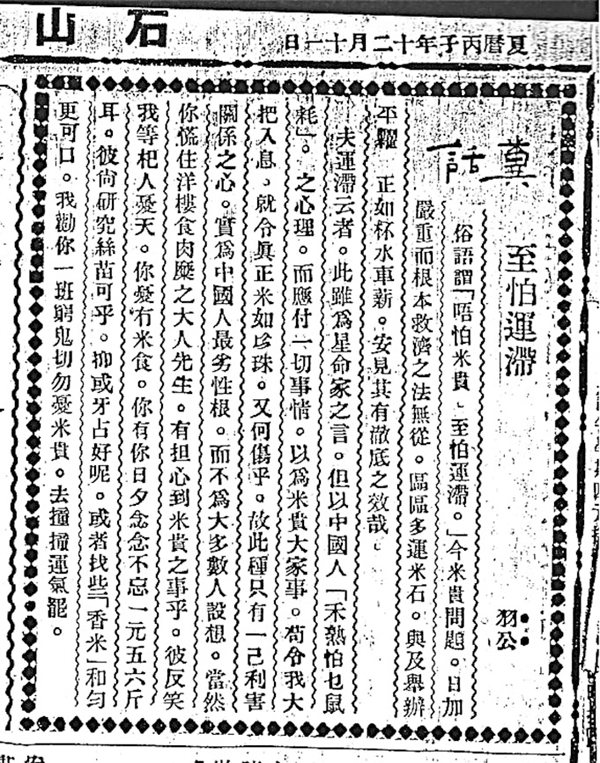 石山
夏曆丙子年十二月十一日
冀話
至怕運滯
羽公
俗語謂「唔怕米貴」至怕運滯。」今米貴問題。日加
嚴重而根本救濟之法無從。區區多運米石。與及舉辦
平糶 正如杯水車薪。安見其有澈底之效哉。
夫運滯云者。此雖爲星命家之言。但以中國人「禾熟怕乜鼠
耗」。之心理。而應付一切事情。以爲米貴大家事。苟令我大
把入息。就令眞正米如珍珠。又何傷乎。故此種只有一己利害
關係之心。實爲中國人最劣性根。而不爲大多數人設想。當然
你慌住洋樓食肉糜之大人先生。有担心到米貴之事乎。彼反笑
我等杞人憂天。你憂有米食。你有你日夕念念不忘一元五六斤
耳。彼尙研究絲苗可乎。抑或牙占好呢。或者找些「香米」和勻
更可口。我勸你一班窮鬼切勿憂米貴。去撞撞運氣罷。